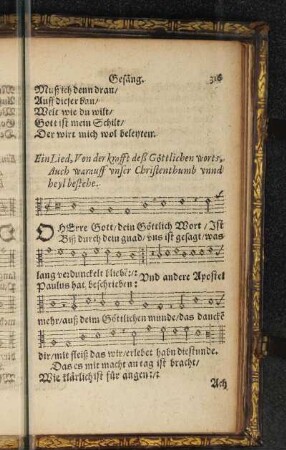 Gesäng. 316
Muß ich denn dran/
Auff dieser ban/
Welt wie du wilt/
Gott ist mein Schilt/
Der wirt mich wol beleyten.
Ein Lied, Von der krafft deß Göttlichen worts,
Auch warauff vnser Christenthumb vnnd
heyl bestehe.
O HErre Gott/dein Göttlich Wort/Ist
Biß durch dein gnad/vns ist gesagt/was
lang verdunckelt bliebẽ:/: Vnd andere Apostel
Paulus hat beschrieben:
mehr/auß deim Göttlichen munde/das danckẽ
dir/mit fleiß das wir/erlebet habn die stunde.
Das es mit macht an tag ist bracht/
Wie klärlich ist für augen:/:
Ach